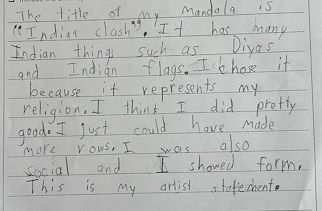 The title of my Mandala is
"Indian clash". It has many
Indian things such as Diyas
and Indian flags. I chose it
because it represents my
religion. I think I did pretty
good. I just could have made
more rows. I was also
social and I showed form.
This is my artist statement.